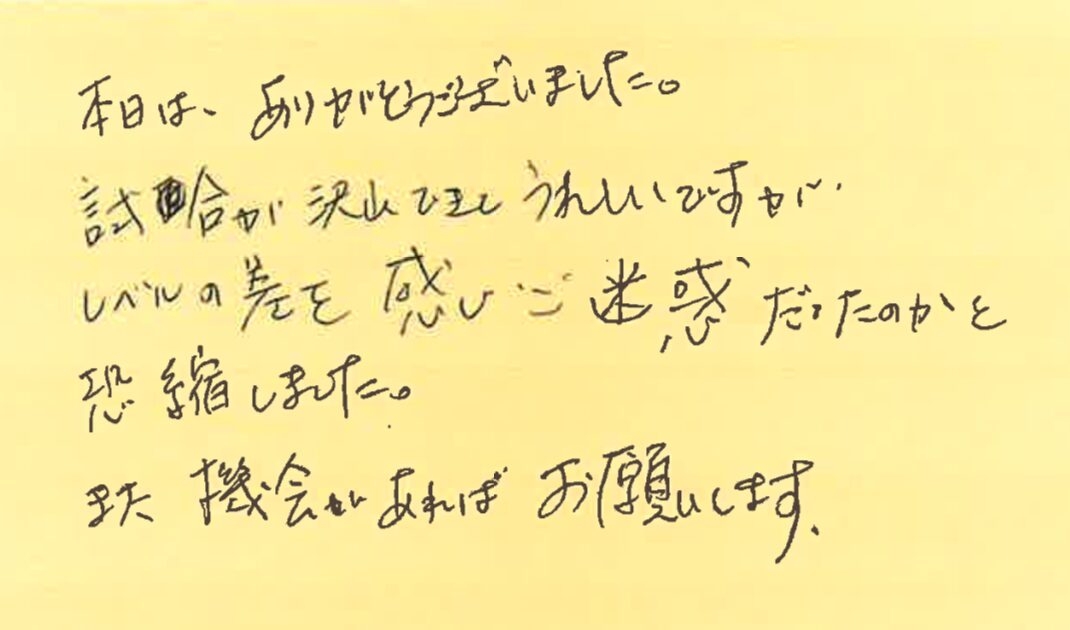 本日は、ありがとうございました。
試合が沢山できとうれしいですが、
レベルの差を感じ、ご迷惑だったのかと
恐縮しました。
また機会があればお願いします。